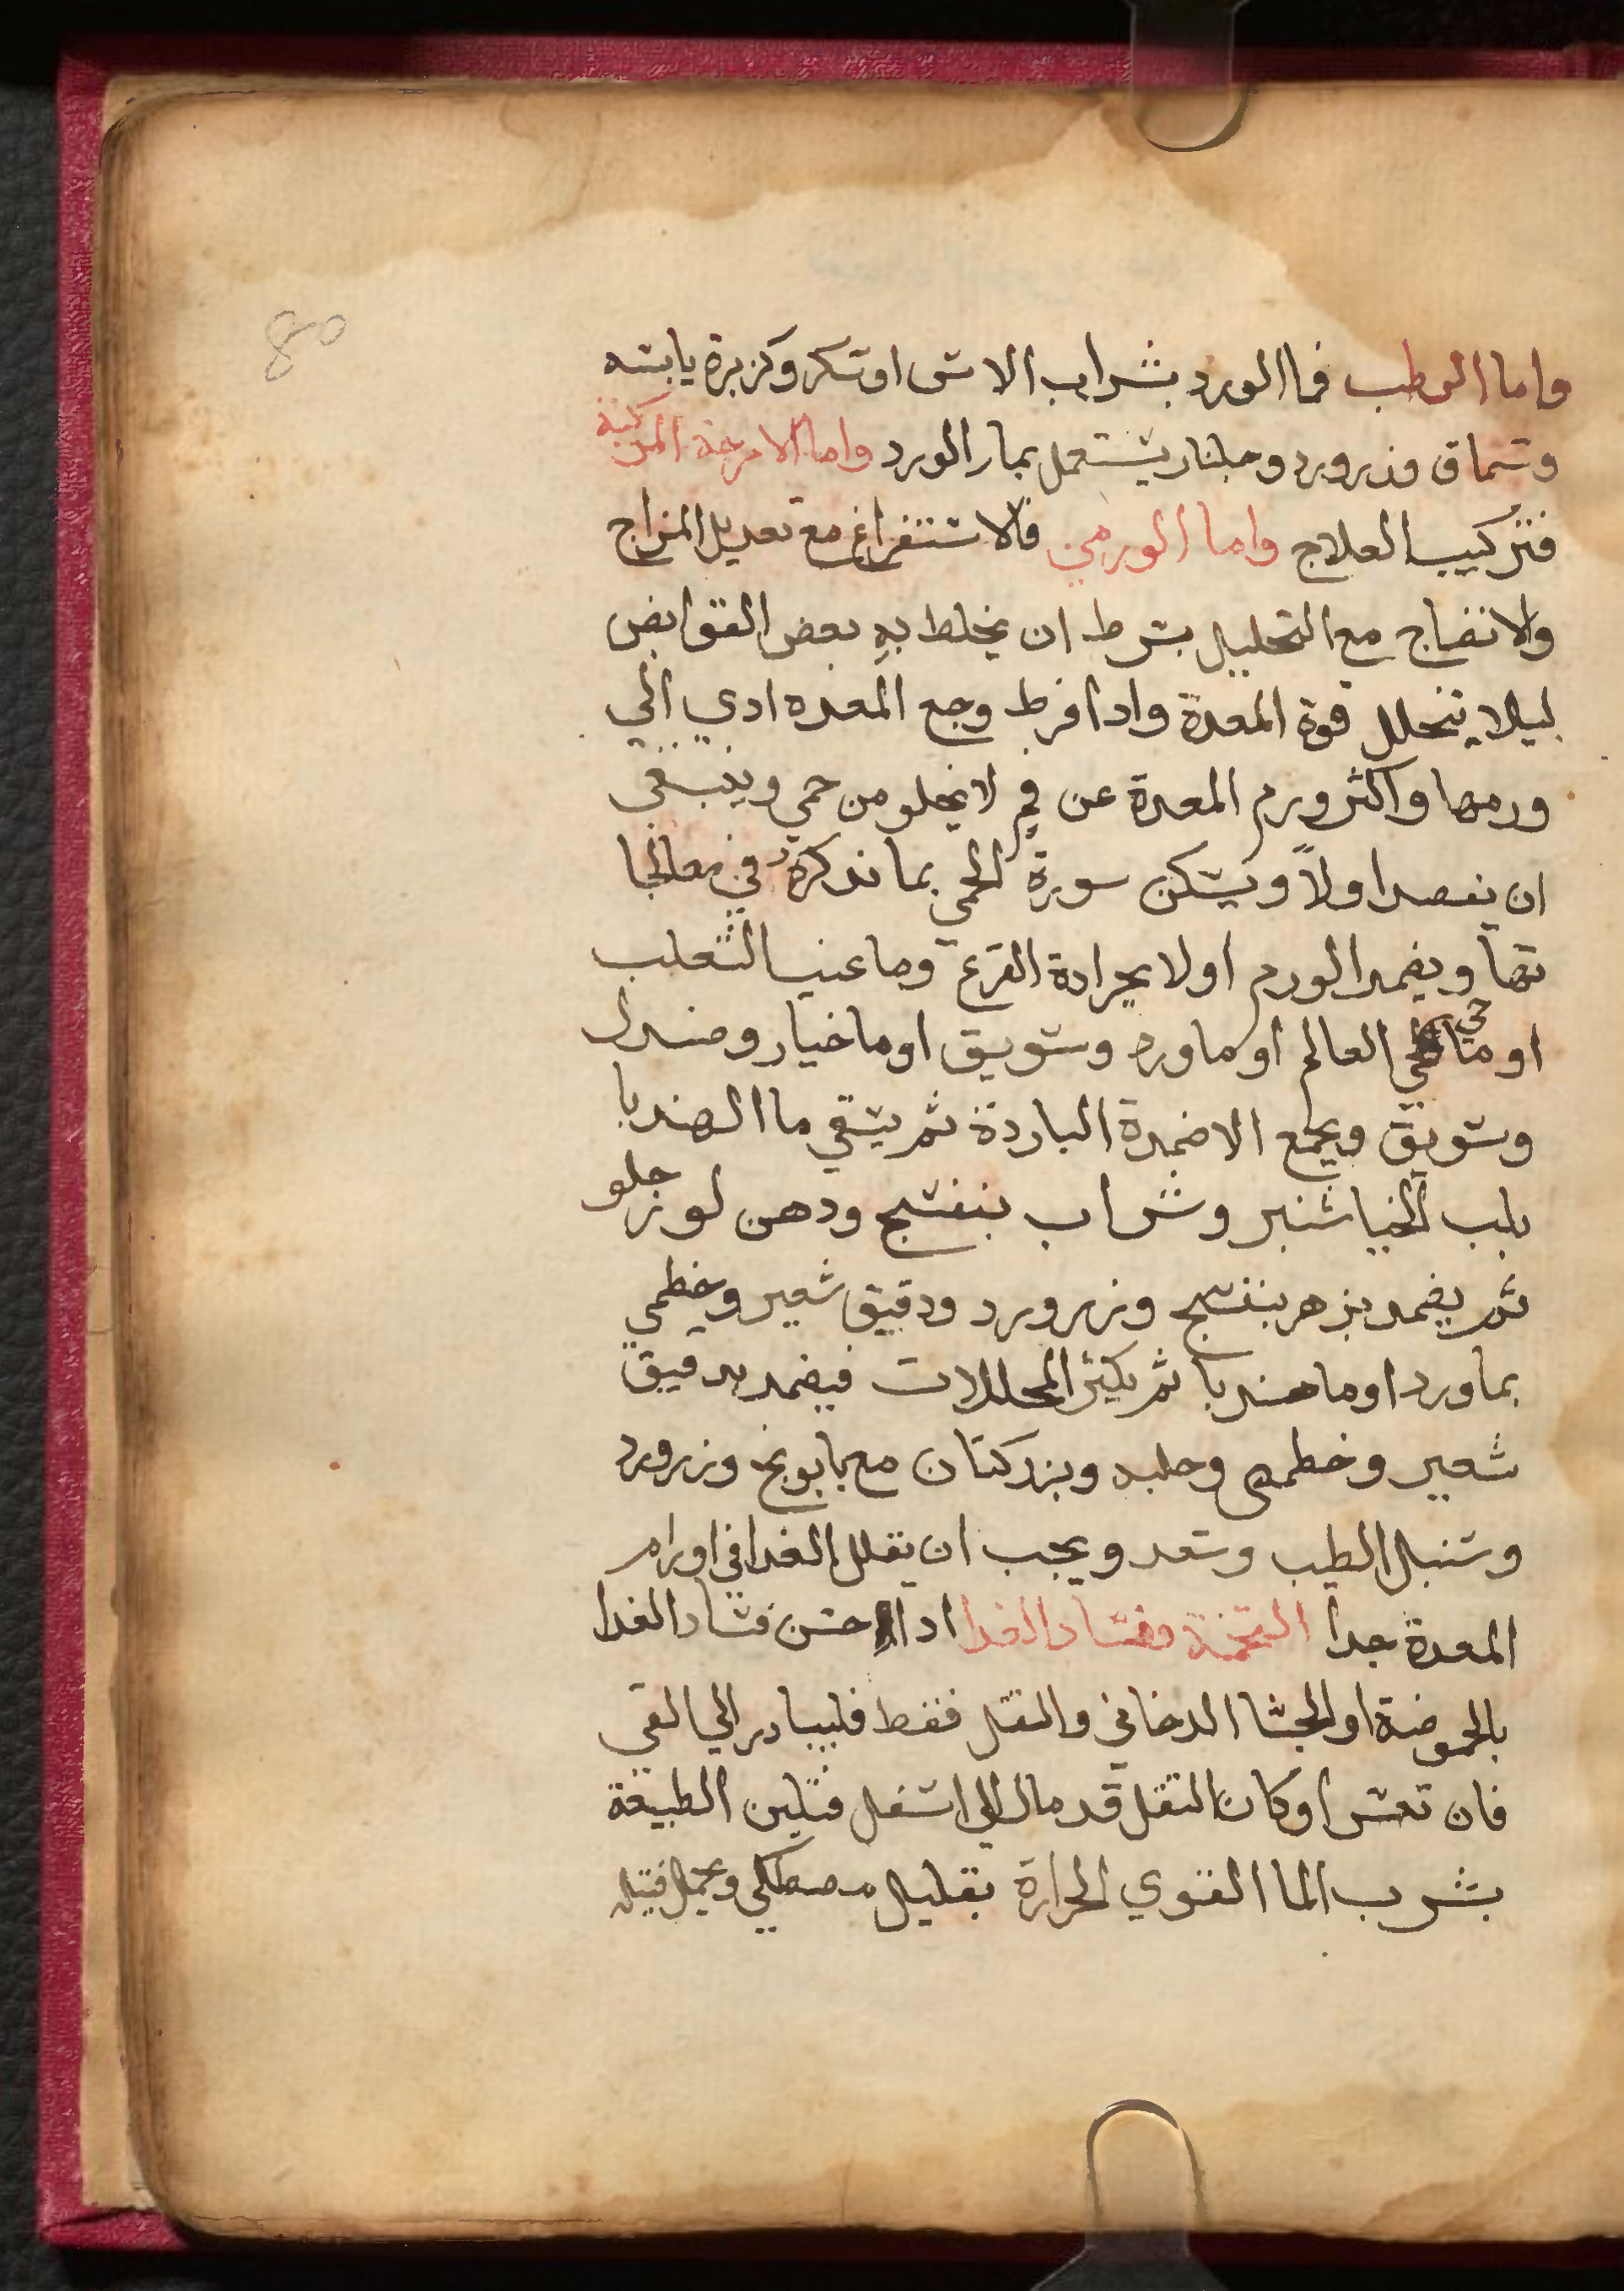 80
واما الرطب فما الورد بشراب الاس او سكر وكزبرة يابسه
وسماق وزرورد وجلنار يستعمل بماء الورد واما الامزجة المركبة
فتركيب العلاج واما الورمي فالاستفراغ مع تعديل المزاج
والانضاج مع التحليل بشرط ان يخلط به بعض القوابض
ليلا يتحلل قوة المعدة واذا افرط وجع المعده ادي الي
ورمها واكثر ورم المعدة عن لا يخلو من حمي وينبغي
ان يفصد اولاً ويسكن سورة الحمي بما نذكره في معالجا
تها ويضمد الورم اولا بجرادة القرع وما عنب الثعلب
او ما حي العالم او ماورد وسويق او ما خيار وصندل
وسويق ويجمع الاضمدة الباردة ثم يسقي ما الهندبا
بلب الخياشنبر وشراب بنفسج ودهن لوز حلو
ثم يضمد بزهر بنفسج وزرورد ودقيق شعير وخطمي
بماورد او ما هندبا ثم يكثر المحللات فيضمد بدقيق
شعير وخطمي وحلبه وبزركتان مع بابونج وزرورد
وسنبل الطيب وسعد ويجب ان يقلل الغدا في اورام
المعدة جدا التخمة وفساد الغدا اذا احسن فساد الغدا
بالحموضة او الجشا الدخاني والثقل فقط فليبادر الي القي
فان تعسر او كان الثقل قد مال الي اسفل فتلين الطبيعة
بشرب الما القوي الحرارة بقليل مصطكي ويحمل فتيله